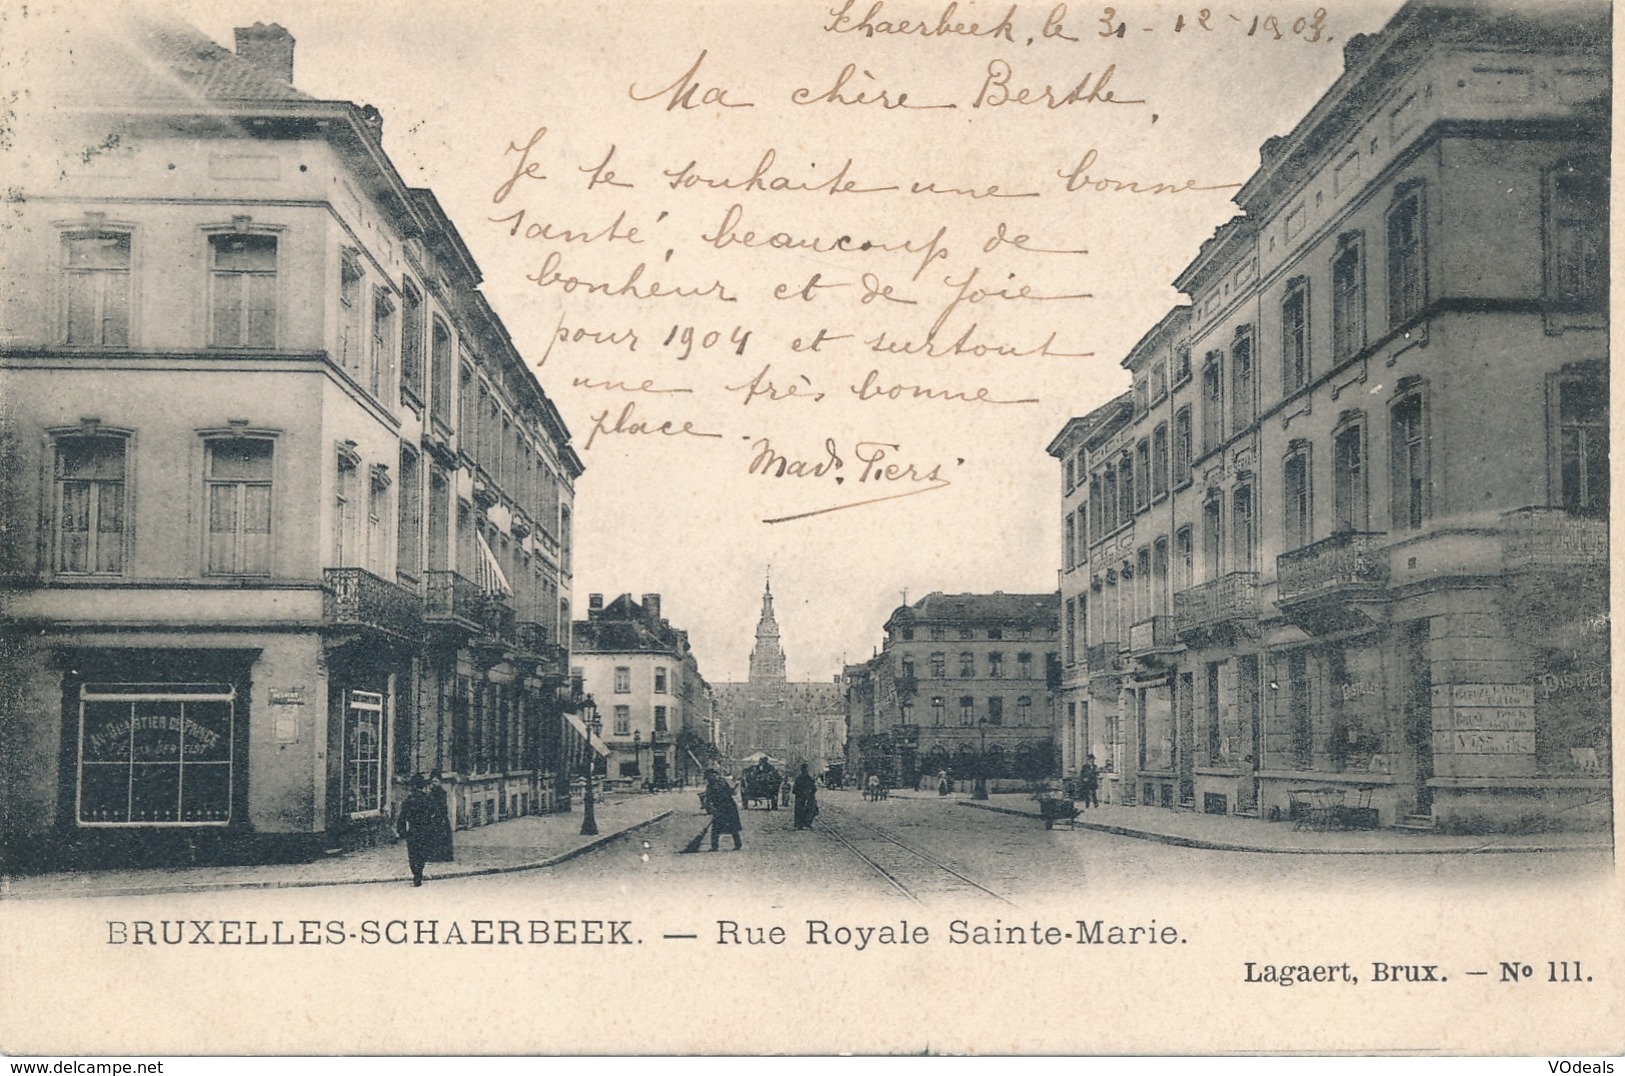 Schaerbeek, le 31-12-1903.
Ma chère Berthe,
Je te souhaite une bonne
santé, beaucoup de
bonheur et de joie
pour 1904 et surtout
une très bonne
place.
Mad. Piers
AU QUARTIER DU PRINCE
DISTILLE
VINS
BRUXELLES-SCHAERBEEK. — Rue Royale Sainte-Marie.
Lagaert, Brux. — No 111.
www.delcampe.net
VOdeals